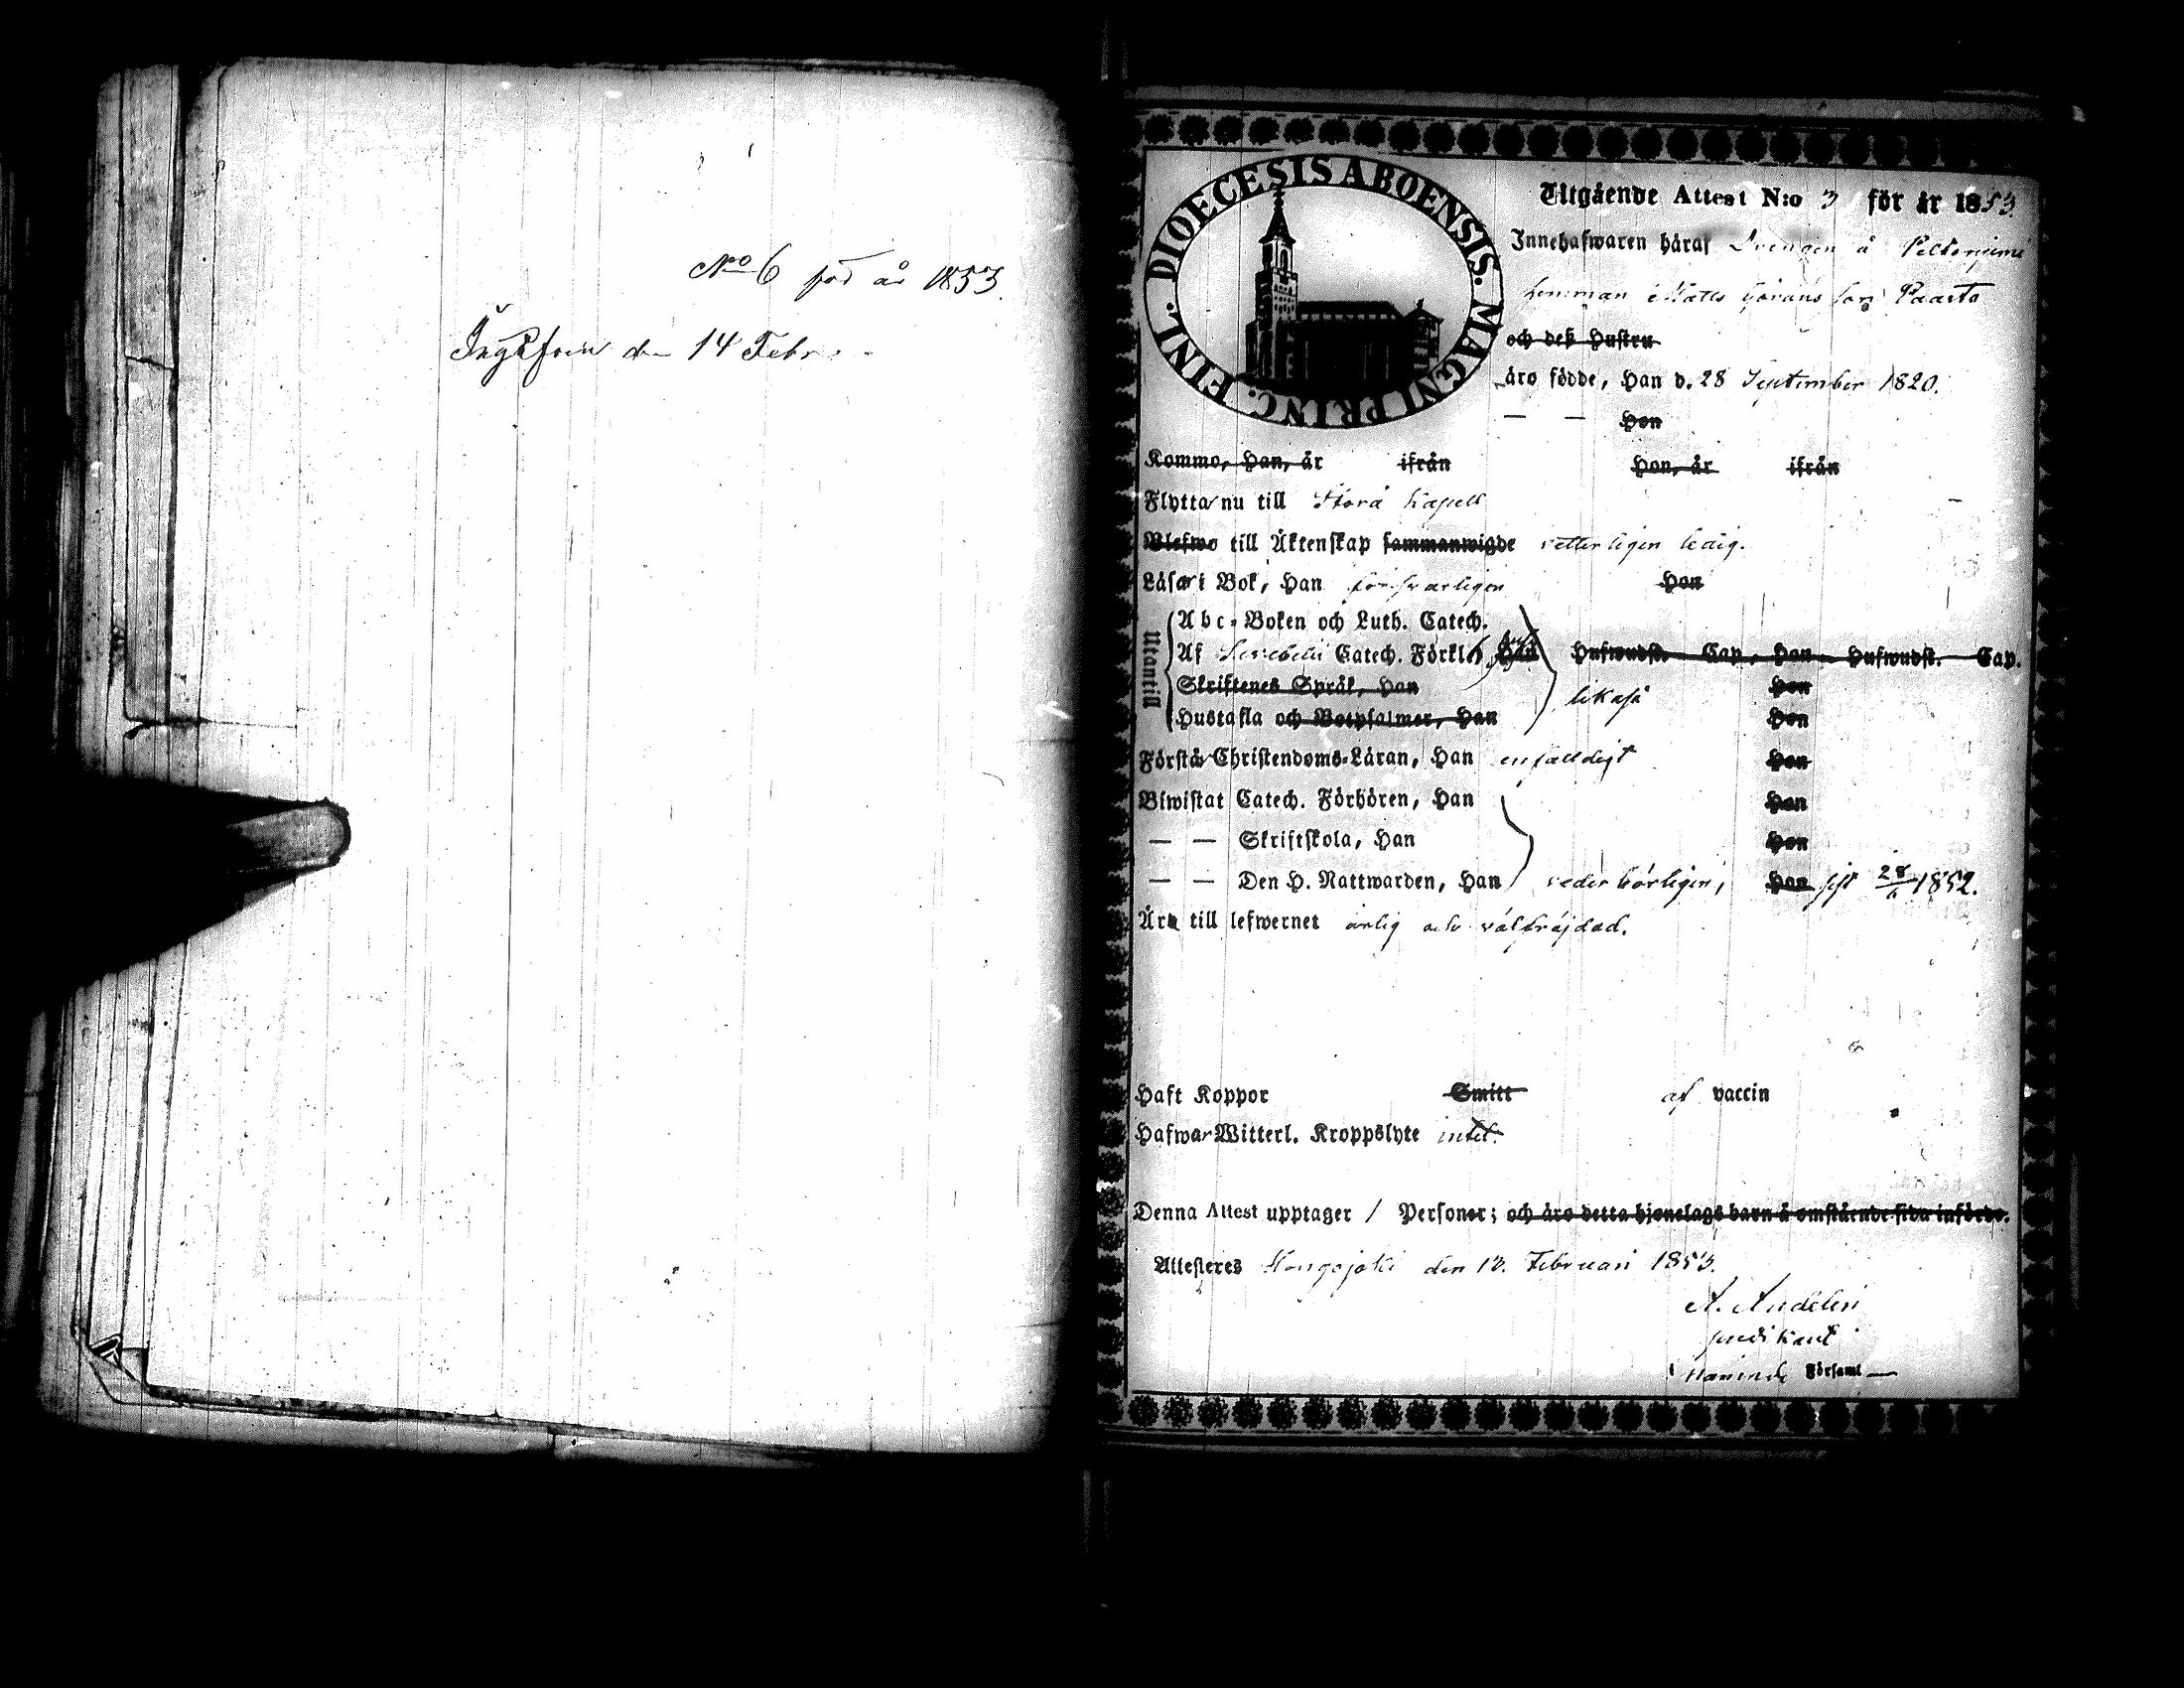 No 6 för år 1853.
den 14 Febr.
DIOECESIS ABOENSIS. MAGNI PRINC. FINL.
Utgående Attest N:o 3 för år 1853.
Innehafwaren häraf Drengen å Peltoniemi
hemman Matts Görans son Paasto
och deß Hustru
äro födde, Han d. 28 September 1820.
— — Hon
Kommo, Han, år ifrån Hon, år ifrån
Flytta nu till Storå Kapell
Blefwo till Äktenskap sammanwigde vetterligen ledig.
Läser i Bok, Han försvarligen Hon
Utantill
Abc-Boken och Luth. Catech.
Af Catech. Förkl. Han Hufwudst. Cap., Hon Hufwudst. Cap.
Skriftenes Språk, Han Hon
Hustafla och Botpsalmer, Han likaså Hon
Förstår Christendoms-Läran, Han enfalldigt Hon
Biwistat Catech. Förhören, Han Hon
— — Skriftskola, Han Hon
— — Den H. Nattwarden, Han vederbörligen, Hon sist 28/6 1852.
Äro till lefwernet ärlig och välfräjdad.
Haft Koppor Smitt af vaccin
Hafwa Witterl. Kroppslyte intet.
Denna Attest upptager / Personer; och äro detta hjonelags barn å omstående sida införde.
Attesteres Hongojoki den 13. Februari 1853.
A. Andelin
predikant
Församl—